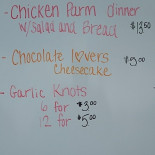 - Chicken Parm dinner
w/Salad and Bread $13.50
- Chocolate lovers
Cheesecake $5.00
- Garlic Knots
6 for $3.00
12 for $5.00